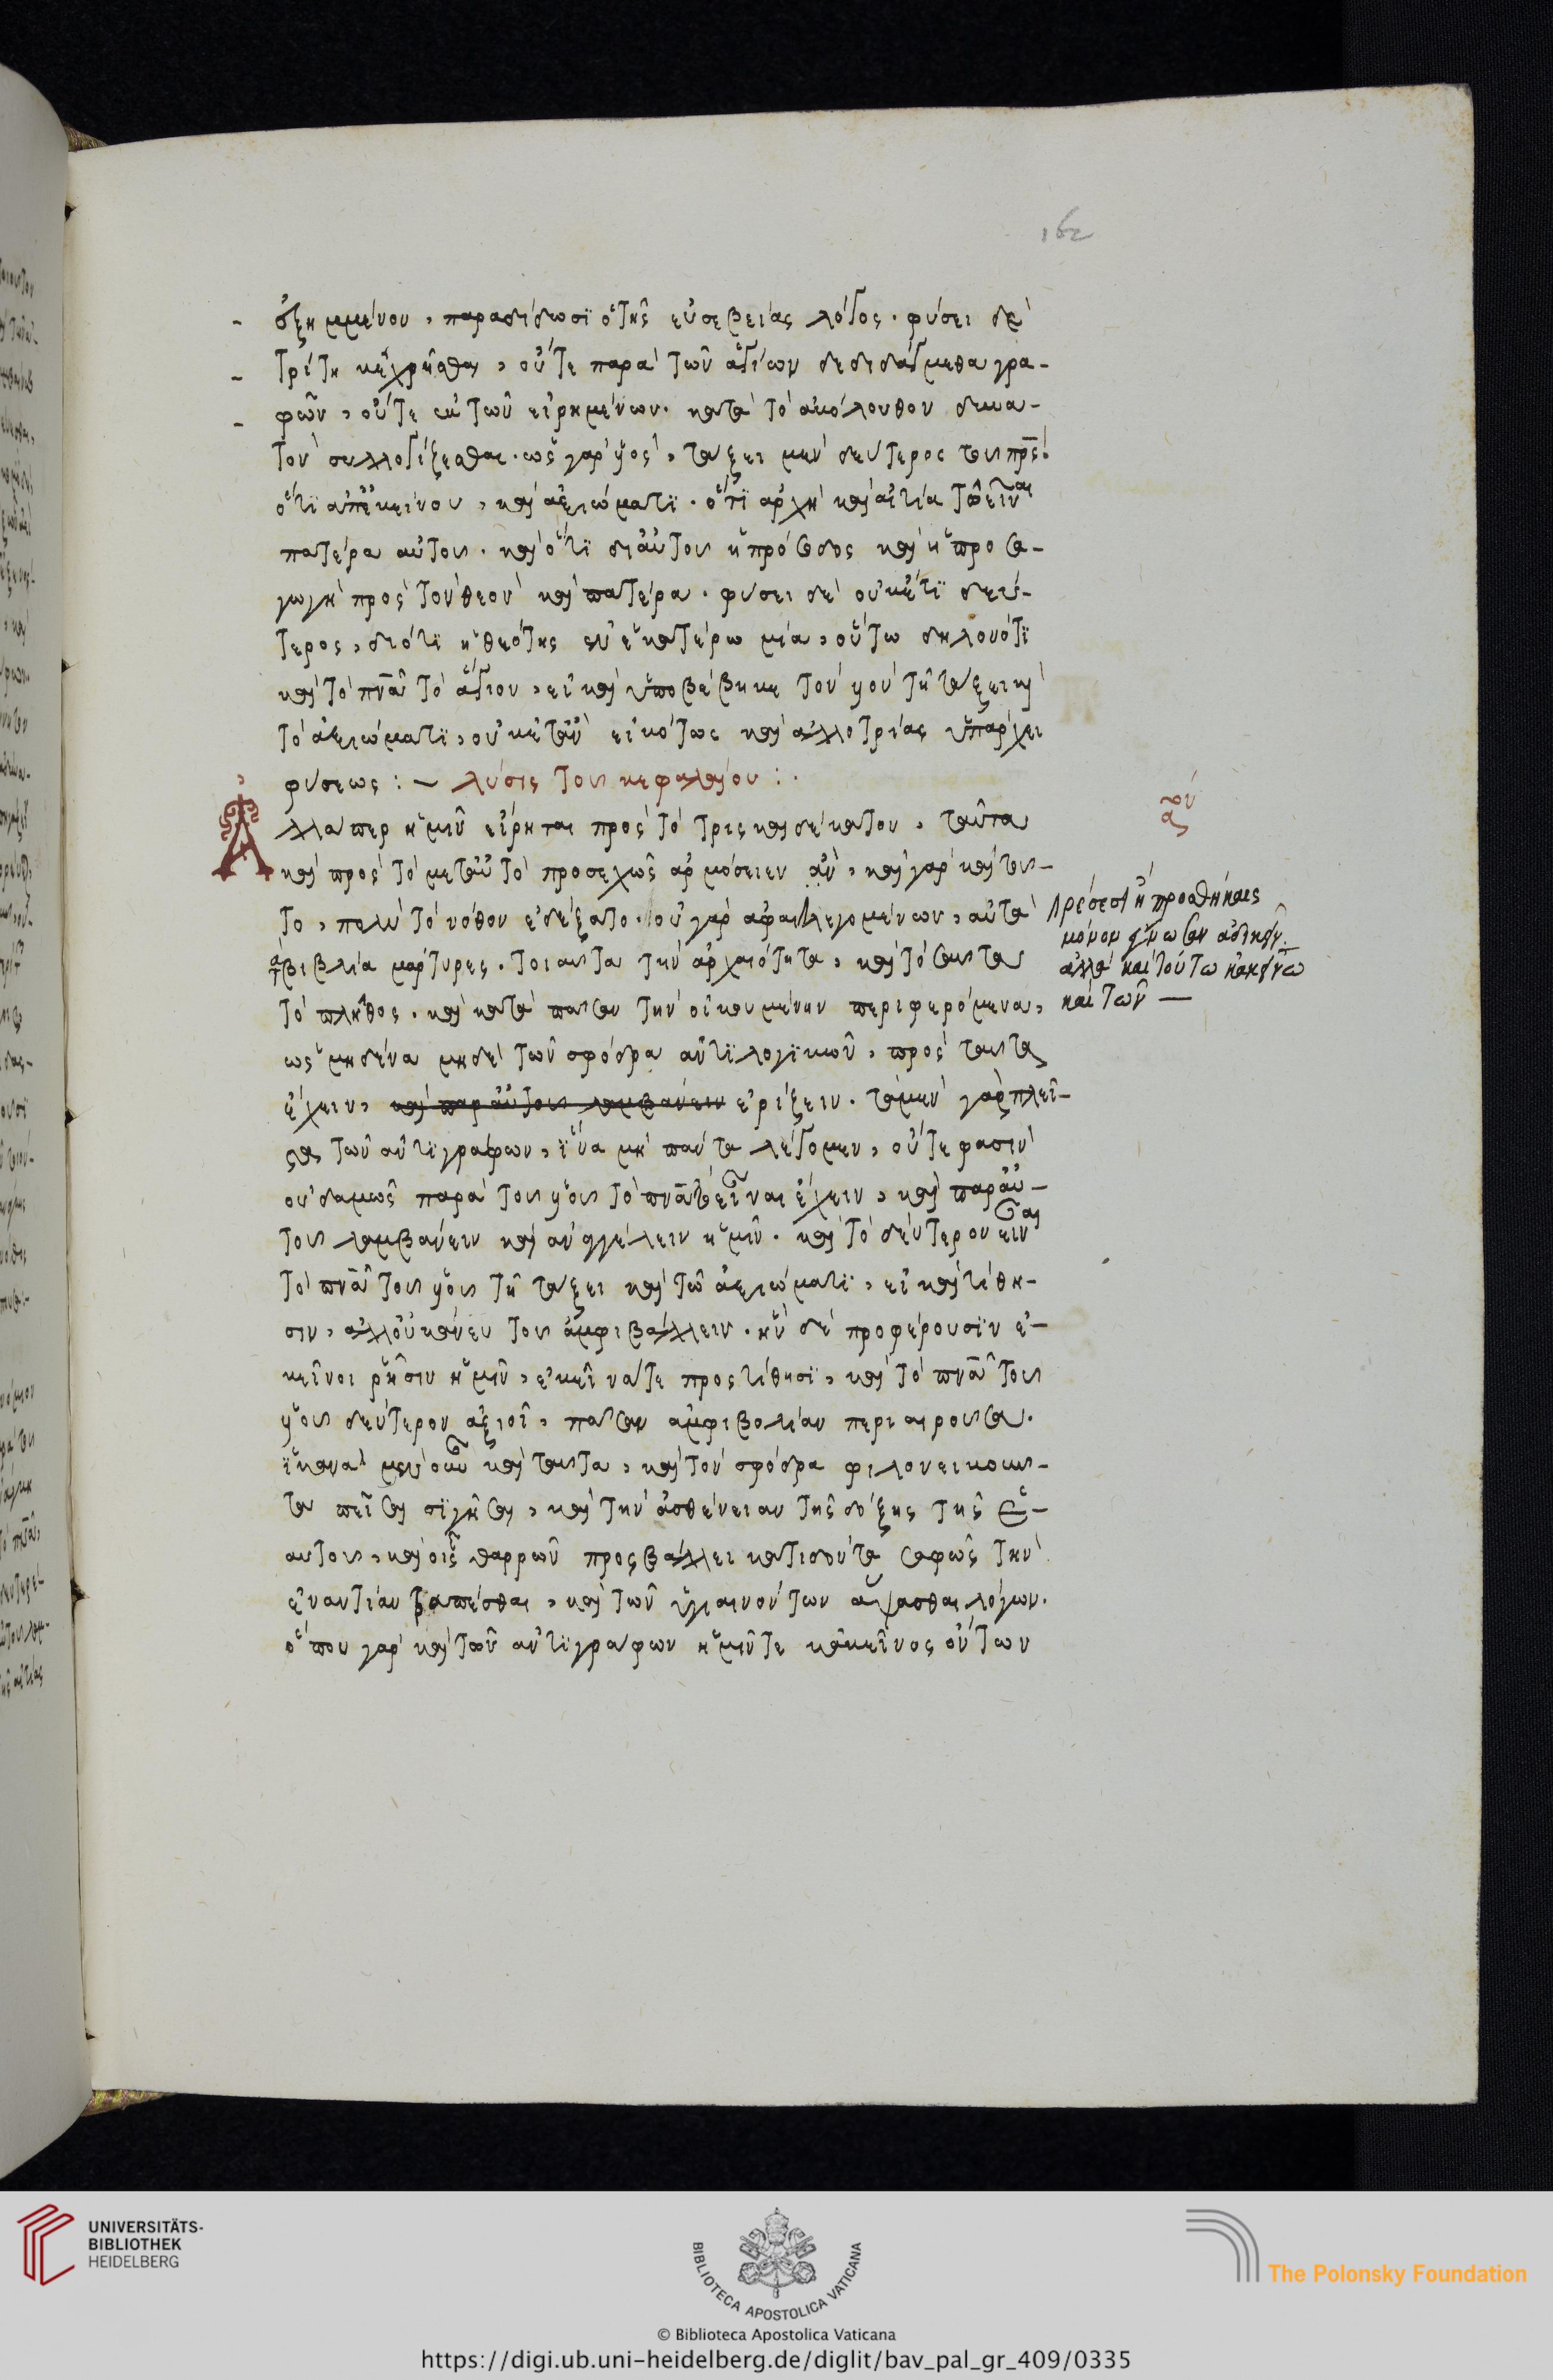 162
ἐξημμένον, παραδίδωσι ὁ τῆς εὐσεβείας λόγος. φύσει δὲ
τρίτη κεχρῆσθαι, οὔτε παρὰ τῶν ἁγίων δεδιδάγμεθα γρα-
φῶν, οὔτε ἐκ τῶν εἰρημένων. κατὰ τὸ ἀκόλουθον δυνα-
τὸν συλλογίζεσθαι. ὡς γὰρ ὁ υἱὸς, τάξει μὲν δεύτερος τοῦ πρς.
ὅτι ἀπ' ἐκείνου, καὶ ἀξιώματι. ὅτι ἀρχὴ καὶ αἰτία τῶ εἶναι
πατέρα αὐτοῦ. καὶ ὅτι δι' αὐτοῦ ἡ πρόσοδος καὶ ἡ προσα-
γωγὴ πρὸς τὸν θεὸν καὶ πατέρα. φύσει δὲ οὐκέτι δεύ-
τερος, διότι ἡ θεότης ἐν ἑκατέρω μία, οὕτω δηλονότι
καὶ τὸ πνα τὸ ἅγιον, εἰ καὶ ὑποβέβηκε τὸν υἱὸν τῆ τάξει καὶ
τὸ ἀξιώματι, οὐκέτ' ἂν εἰκότως καὶ ἀλλοτρίας ὑπάρχει
φύσεως : – λύσις τοῦ κεφαλαίου :.
Ἀλλαπερ ἡμῖν εἴρηται πρὸς τὸ τρισκαιδέκατον, ταῦτα
καὶ πρὸς τὸ μετ' αὐτὸ προσεχῶς ἁρμόσειεν ἂν, καὶ γὰρ καὶ τοῦ-
το, πολὺ τὸ νόθον ἐδέξατο. οὐ γὰρ ἀφαιλεγομένων, αὐτὰ
βιβλία μάρτυρες. τοιαῦτα τὴν ἀρχαιότητα, καὶ τὸ σαῦτα
τὸ πλῆθος. καὶ κατὰ πᾶσαν τὴν οἰκουμένην περιφερόμενα,
ὡς μηδένα μηδὲ τῶν σφόδρα ἀντιλογικῶν, πρὸς ταῦτα
ἔχειν, καὶ παρ' αὐτοῦ λαμβάνειν ἐρίζειν. τὰ μὲν γὰρ πλεῖ-
στα τῶν ἀντιγράφων, ἵνα μὴ πάντα λέγομεν, οὔτε φασὶν
οὐδαμῶς παρὰ τοῦ υἱοῦ τὸ πνα τὸ εἶναι ἔχειν, καὶ παρ' αὐ-
τοῦ λαμβάνειν καὶ ἀναγγέλειν ἡμῖν. καὶ τὸ δεύτερον εἶναι
τὸ πνα τοῦ υἱοῦ τῆ τάξει καὶ τῶ ἀξιώματι, εἰ καὶ τίθη-
σιν, ἀλλ' οὐκ ἄνευ τοῦ ἀμφιβάλλειν. ἣν δὲ προφέρουσιν ἐ-
κεῖνοι ῥῆσιν ἡμῖν, ἐκεῖνά τε προστίθησι, καὶ τὸ πνα τοῦ
υἱοῦ δεύτερον ἀξιοῖ, πᾶσαν ἀμφιβολίαν περιαιροῦσα.
ἱκανὰ μὲν οὖν καὶ ταῦτα, καὶ τὸν σφόδρα φιλονεικοῦν-
τα πεῖσαι σιγῆσαι, καὶ τὴν ἀσθένειαν τῆς δόξης τῆς ἑ-
αυτοῦ, καὶ οἷς θαρρῶν προσβάλλει κατιδόντα σαφῶς τὴν
ἐναντίαν τραπέσθαι, καὶ τῶν ὑγιαινόντων ἅψασθαι λόγων.
ὅπου γὰρ καὶ τῶν ἀντιγράφων ἡμῖν τε κἀκεῖνος ὄντων
ἡ προσθήκαις
μόνον
ἀλλὰ καὶ τούτω
καὶ τῶν —
UNIVERSITÄTS-
BIBLIOTHEK
HEIDELBERG
BIBLIOTECA APOSTOLICA VATICANA
The Polonsky Foundation
© Biblioteca Apostolica Vaticana
https://digi.ub.uni-heidelberg.de/diglit/bav_pal_gr_409/0335